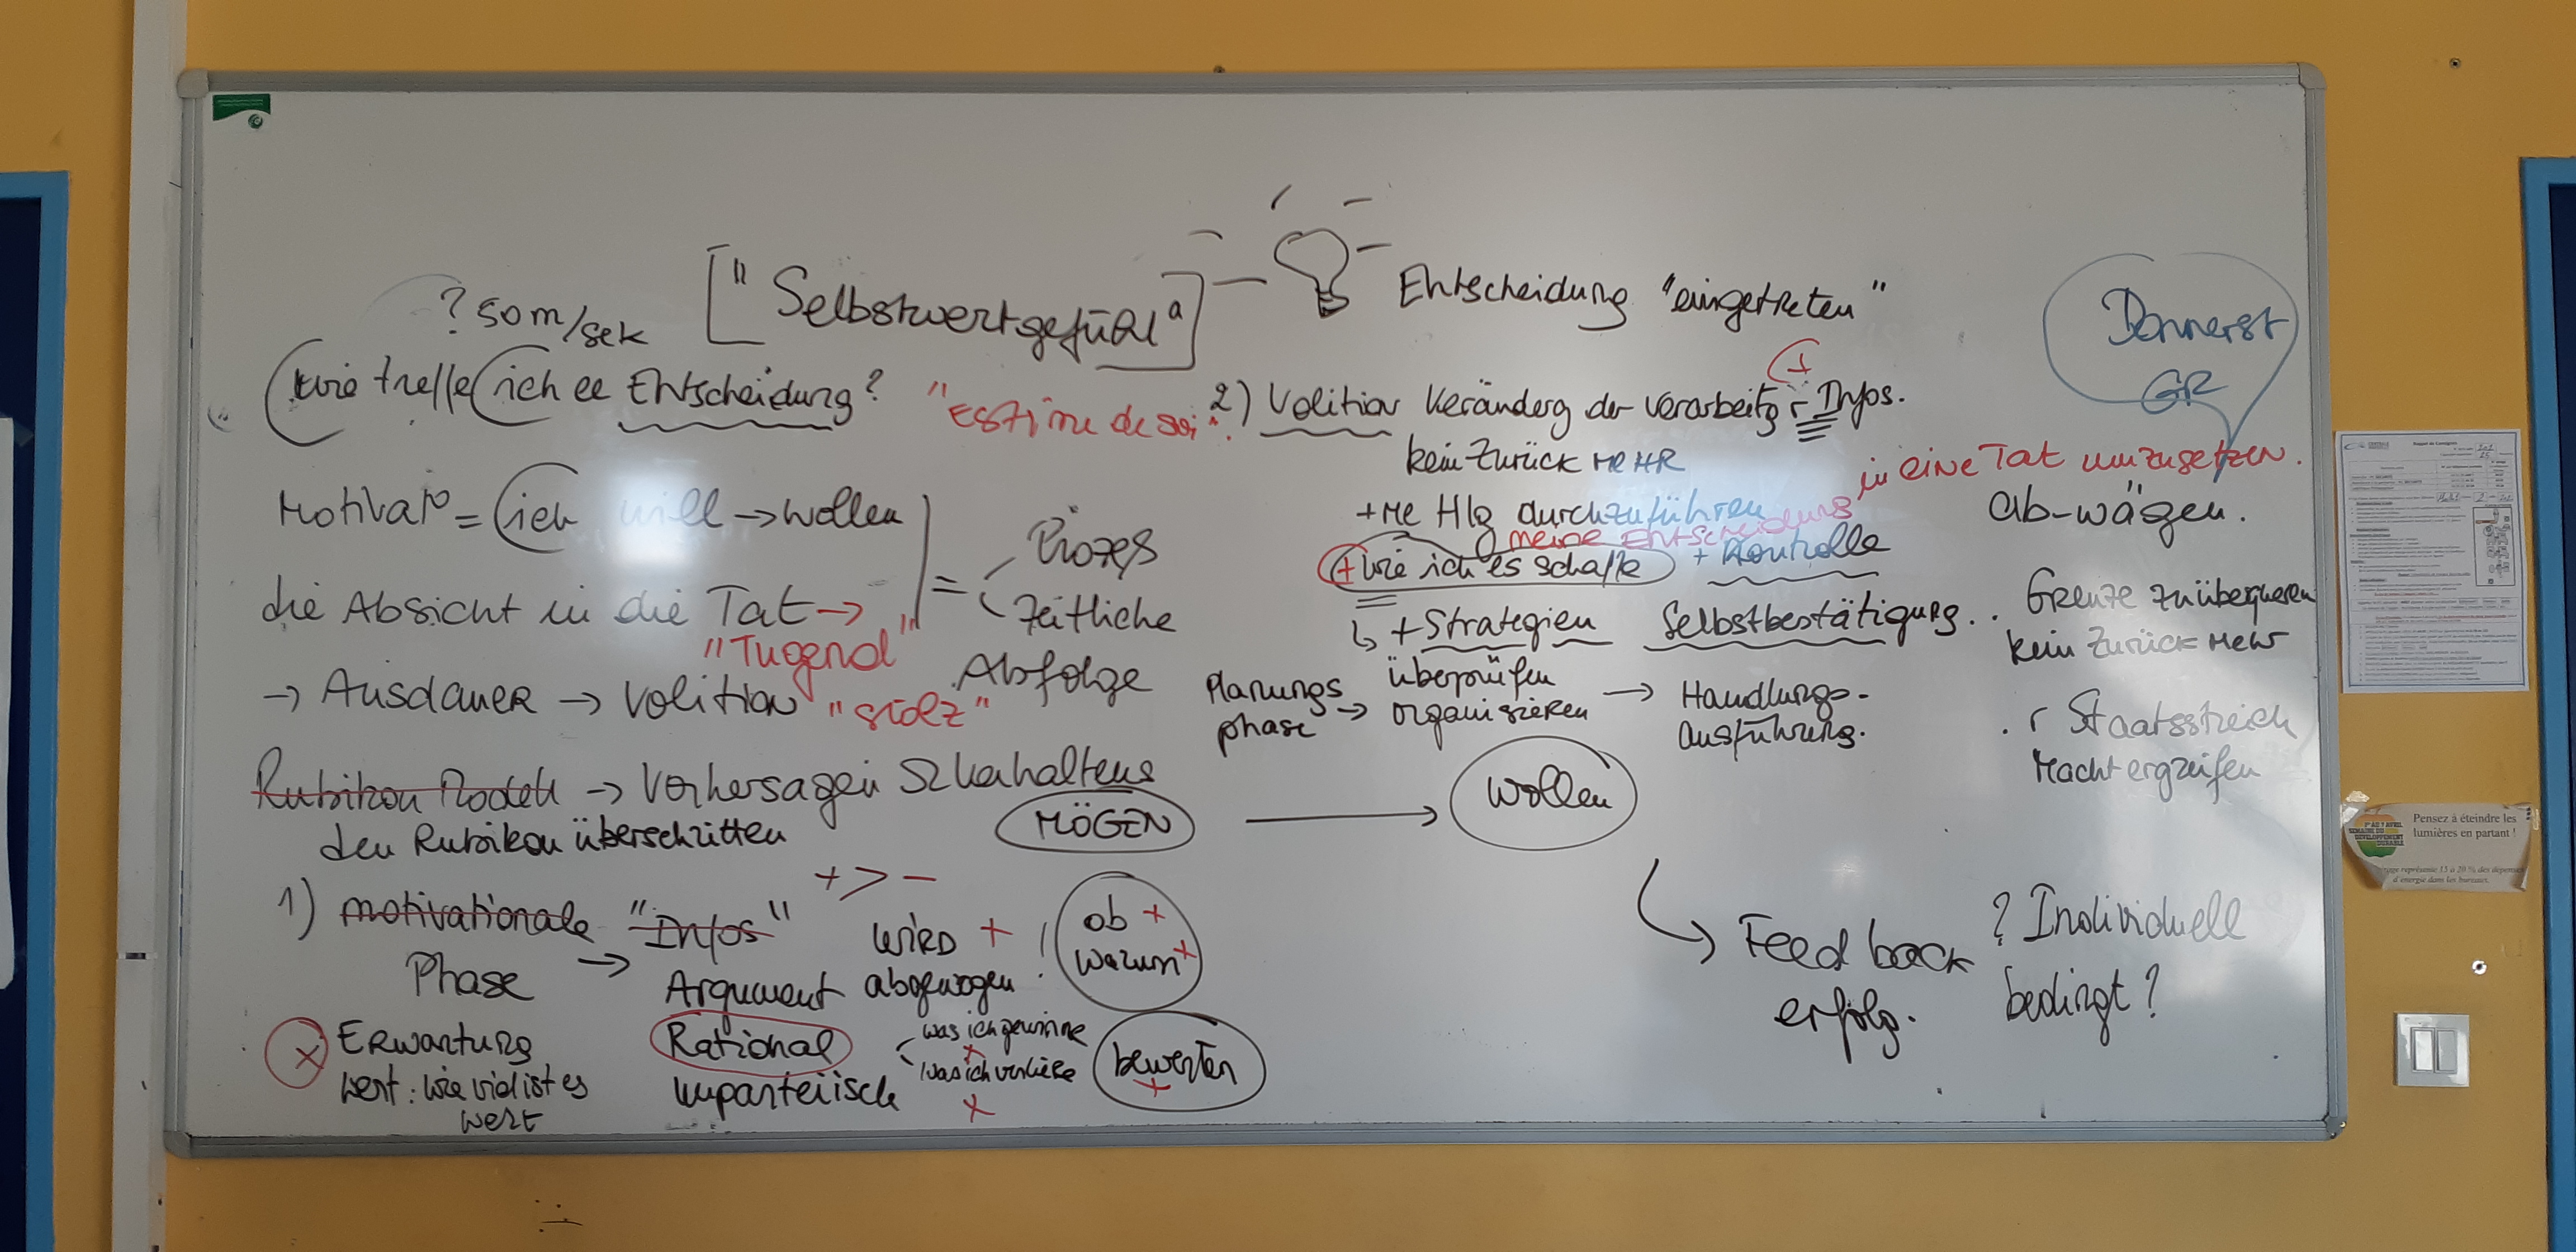 ? 50 m/sek
["Selbstwertgefühl"]
Entscheidung "eingetreten"
Donnerst
GR
wie treffe ich ee Entscheidung?
"Estime de soi".
2) Volition Veränderg der Verarbeitg r Infos.
kein Zurück MEHR
in eine Tat umzusetzen.
+ Me Hlg durchzuführen
meine Entscheidung
ab-wägen.
Motivat° = ich will → wollen
= Prozeß
Zeitliche
Abfolge
+ wie ich es schaffe + Kontrolle
die Absicht in die Tat →
"Tugend"
↳ + Strategien Selbstbestätigung..
Grenze zu überqueren
kein Zurück Mehr
→ Ausdauer → Volition "stolz"
Planungs
phase → überprüfen
organisieren → Handlungs-
ausführung.
. r Staatsstreich
Macht ergreifen
Rubikon Modell → Vorhersagen Verhaltens
den Rubikon überschritten
MÖGEN → Wollen
+ > -
1) motivationale "Infos" WIRD + !
Phase → Argument abgewogen
ob +
warum +
→ Feed back
erfolg.
? Individuell
bedingt?
x Erwartung
wert: wie viel ist es
wert
Rational
unparteiisch
was ich gewinne
x
was ich verliere
x
bewerten
+
Pensez à éteindre les
lumières en partant !